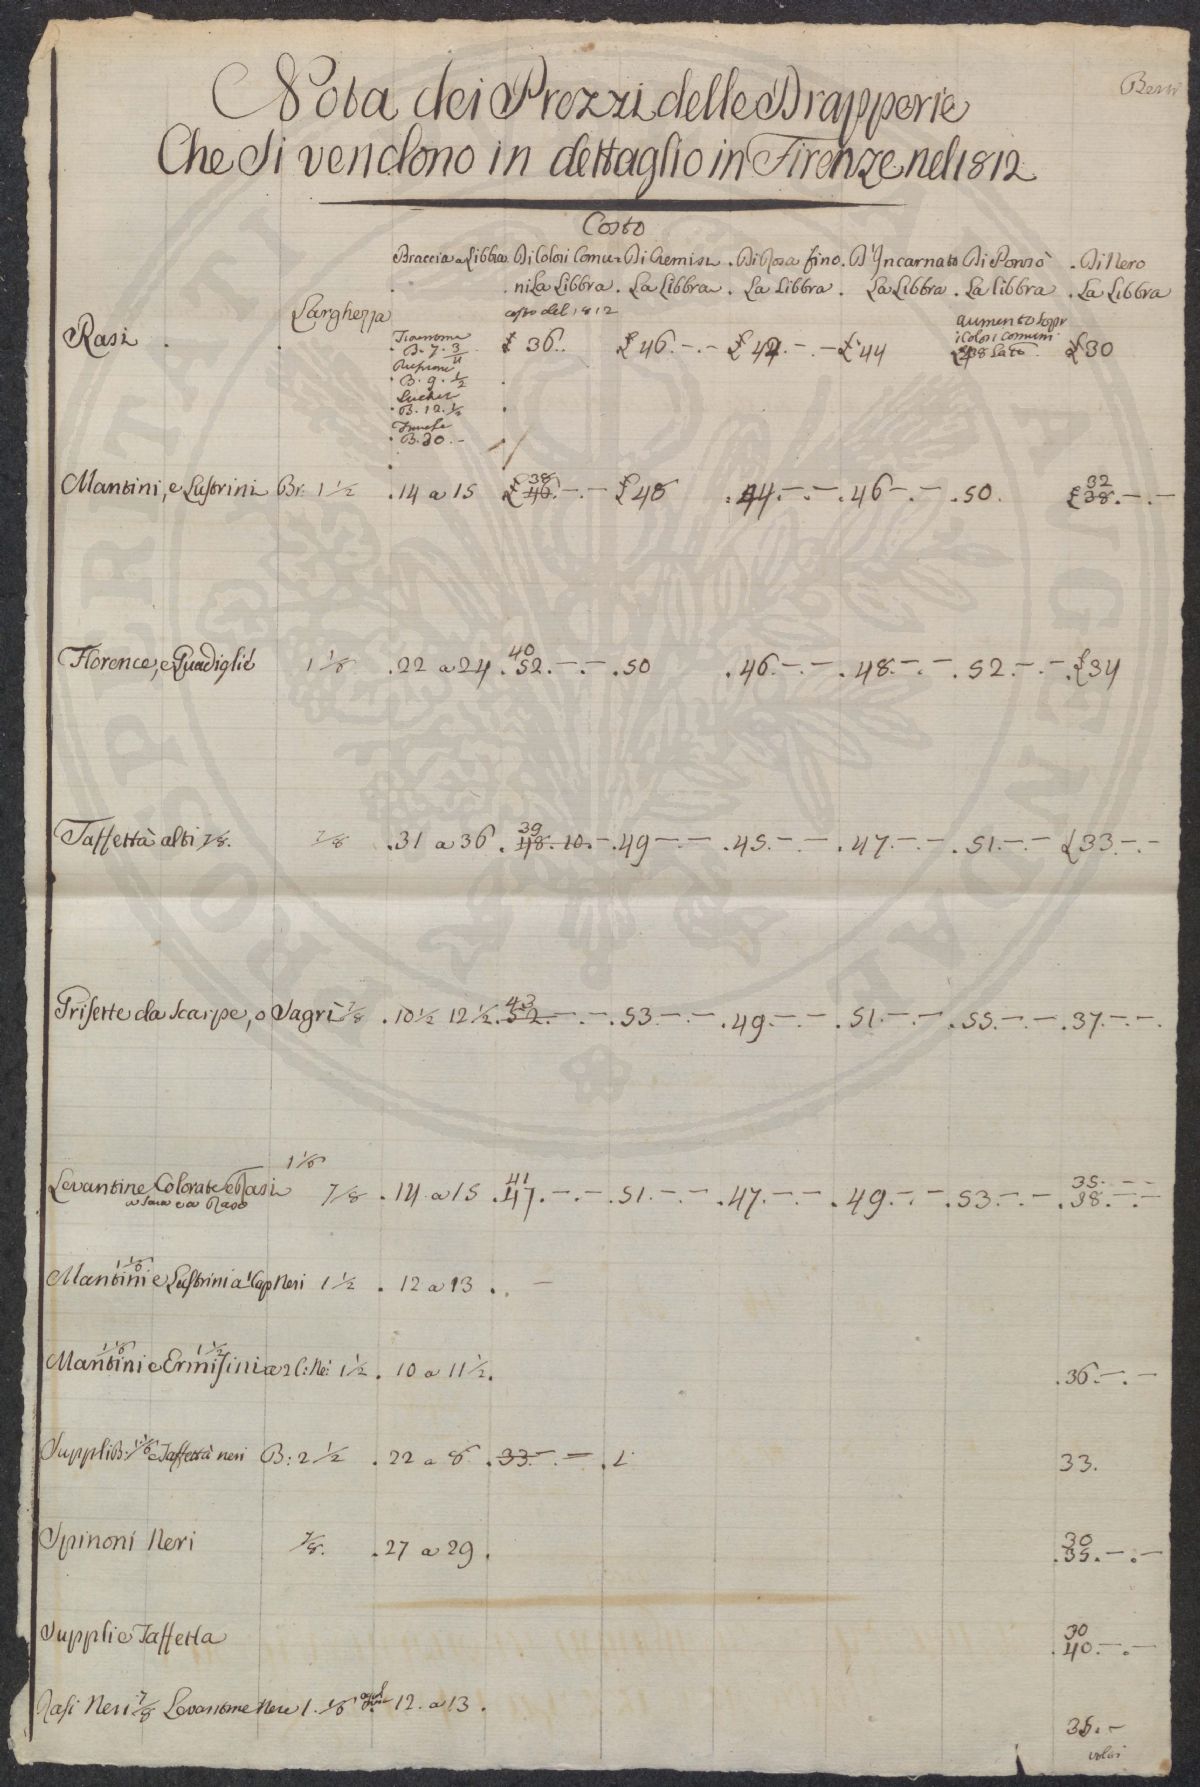 Nota dei Prezzi delle Drapperie
Che Si vendono in dettaglio in Firenze nel 1812
Costo
Braccia a Libbra Di Colori Comu- Di Cremisi . Di Rosa fino . D'Incarnato Di Ponsò . Di Nero
ni La Libbra . La Libbra . La Libbra . La Libbra . La Libbra . La Libbra
Larghezza costo del 1812
Rasi . . £ 36.. £ 46.-.- £ 42.-.- £ 44 £ 30
aumento sopr
i Colori Comuni
B. 7. 3/4
B. 9. 1/2
B. 12. 1/2
B. 20.-
38 32
Mantini, e Lustrini Br: 1 1/2 . 14 a 15 £ 46.-.- £ 48 . 44.-.- . 46-.- . 50. £ 38.-.-
40
Florence, e Quadigliè 1 1/8 . 22 a 24 . 52.-.- . 50 . 46.-.- . 48.-.- . 52.-.- . £ 34
39
Taffettà alti 7/8. 7/8 . 31 a 36 . 48.10.- . 49.-.- . 45.-.- . 47.-.- . 51.-.- £ 33.-.-
43
Trisette da Scarpe, o Sagrì 7/8 . 10 1/2 12 1/2 . 52.-.- . 53.-.- . 49.-.- . 51.-.- . 55.-.- . 37.-.-.
1 1/6
41 35.-.-
Levantine Colorate e Rasi 7/8 . 14 a 15 . 47.-.- . 51.-.- . 47.-.- . 49.-.- . 53.-.- . 38.-.-
1 1/6
Mantini e Lustrini a 1 Cap Neri 1 1/2 . 12 a 13 . . -
1 1/6 1 1/2
Mantini e Ermisini a 2 C: Ne: 1 1/2 . 10 a 11 1/2. . 36.-.-
Suppli B: 1 1/6 e Taffettà neri B: 2 1/2 . 22 a 8 . 33.-.- 33.
30
Spinoni Neri 7/8. . 27 a 29 . . 35.-.-
30
Suppli e Taffetta . 40.-.-
Rasi Neri 7/8 Levantine Nere 1. 1/6 12. a 13 .
35.-
volri